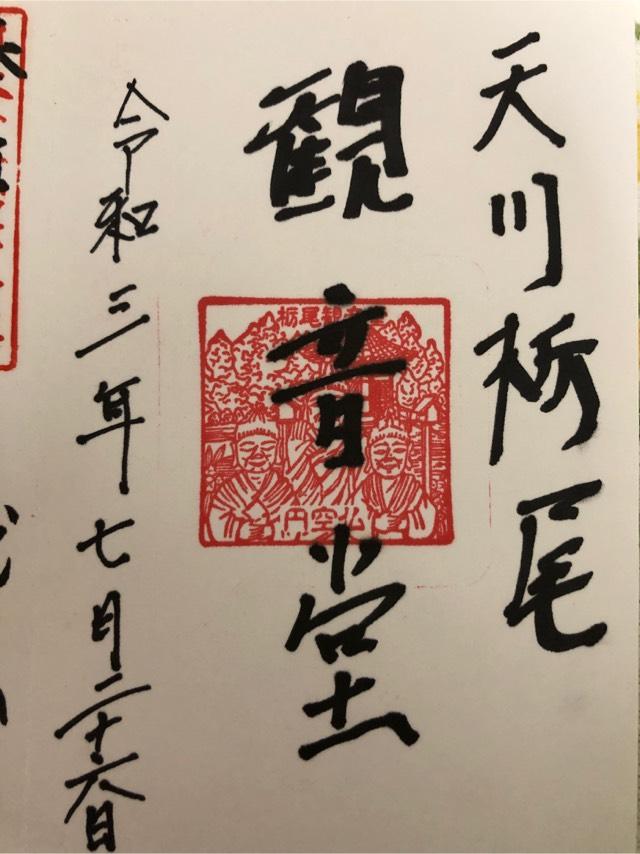 天川栃尾
観音堂
令和三年七月二十六日
栃尾観音
円空仏